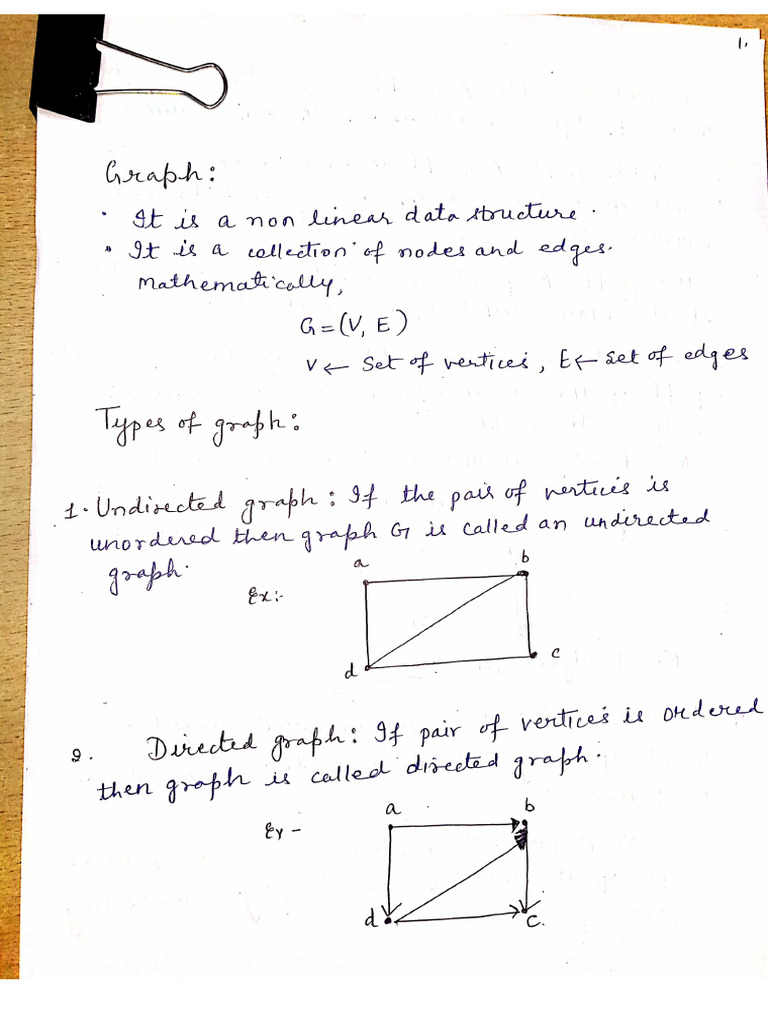 1.
Graph:
• It is a non linear data structure.
• It is a collection of nodes and edges.
Mathematically,
G = (V, E)
V ← Set of vertices, E ← set of edges
Types of graph:
1. Undirected graph: If the pair of vertices is
unordered then graph G is called an undirected
graph.
Ex:-
a b
d c
2. Directed graph: If pair of vertices is ordered
then graph is called directed graph.
Ex -
a b
d c.